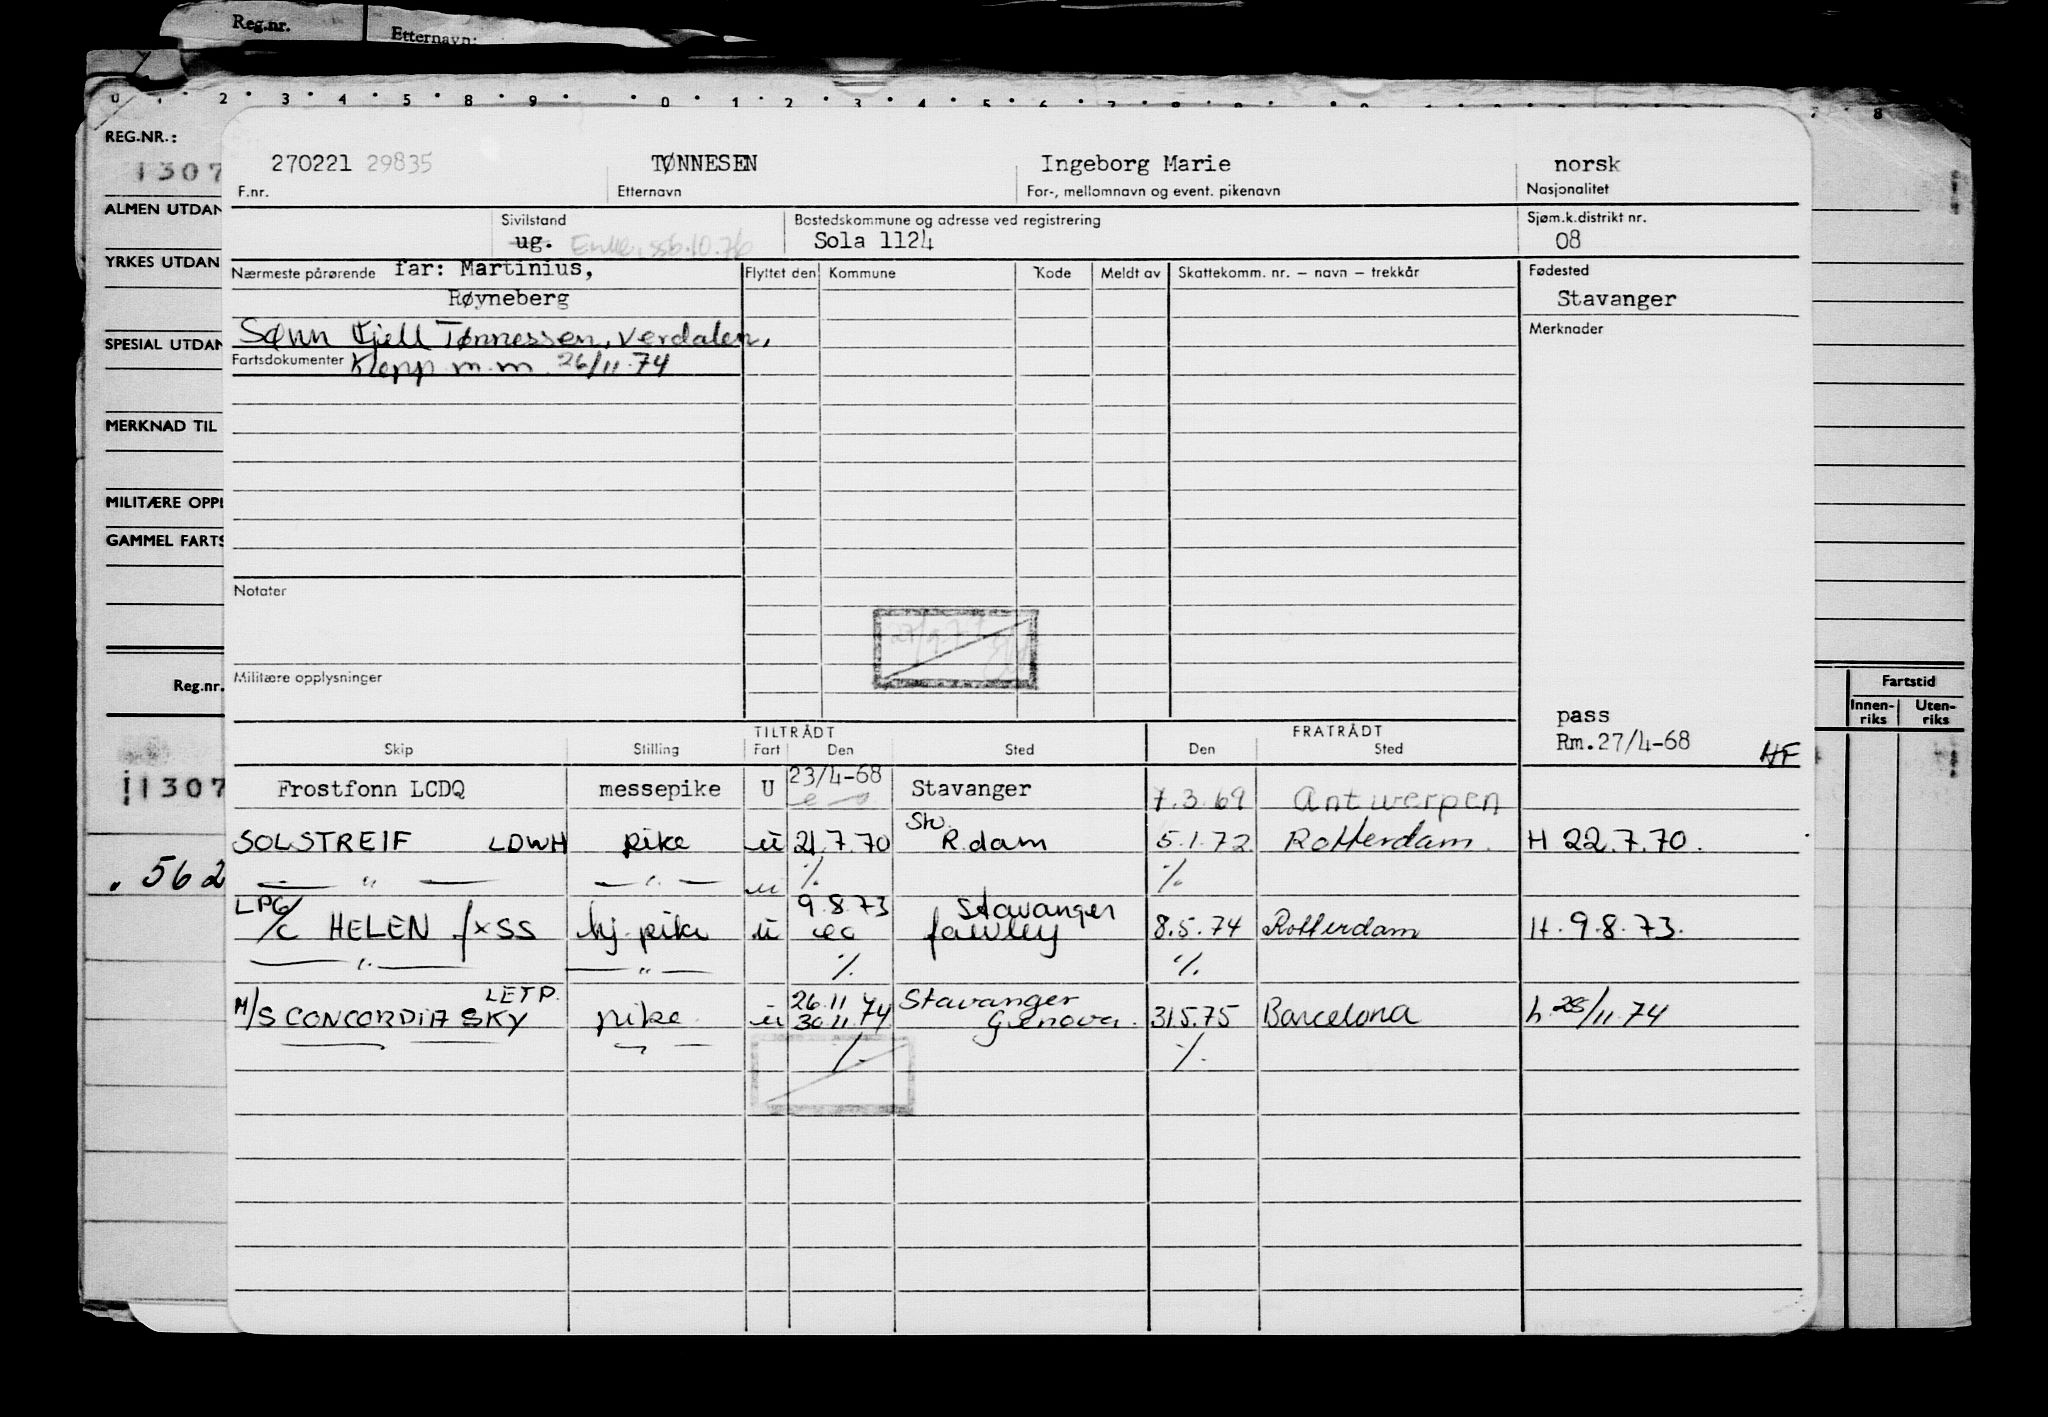 Reg.nr. Etternavn:
0 1 2 3 4 5 8 9 0 1 2 3 4 5 6 7 8
REG.NR.:
1307
ALMEN UTDAN
YRKES UTDAN
SPESIAL UTDAN
MERKNAD TIL
MILITÆRE OPPL
GAMMEL FARTS
Reg.nr.
1307
. 562
Fartstid
Innen-riks Uten-riks
270221 29835 TØNNESEN Ingeborg Marie norsk
F.nr. Etternavn For-, mellomnavn og event. pikenavn Nasjonalitet
Sivilstand Bostedskommune og adresse ved registrering Sjøm.k.distrikt nr.
ug. Enke, ssb.10.76 Sola 1124 08
Nærmeste pårørende far: Martinius, Flyttet den Kommune Kode Meldt av Skattekomm. nr. – navn – trekkår Fødested
Røyneberg Stavanger
Sønn Kjell Tønnessen, Verdalen, Merknader
Fartsdokumenter Klepp m.m 26/11.74
Notater
27/9.77
Militære opplysninger
pass
Rm.27/4-68 HF
TILTRÅDT FRATRÅDT
Skip Stilling Fart Den Sted Den Sted
Frostfonn LCDQ messepike U 23/4-68 Stavanger 7.3.69 Antwerpen
SOLSTREIF LDWH pike u 21.7.70 Stv. R.dam 5.1.72 Rotterdam. H 22.7.70.
— " — — " — u % %
LPG/C HELEN fxSS hj.pike u 9.8.73 Stavanger Fawley 8.5.74 Rotterdam H.9.8.73.
— " — — " — % %
M/S CONCORDIA SKY LETP. pike u 26.11 30.11.74 Stavanger Genova. 31.5.75 Barcelona h.28/11.74
% %